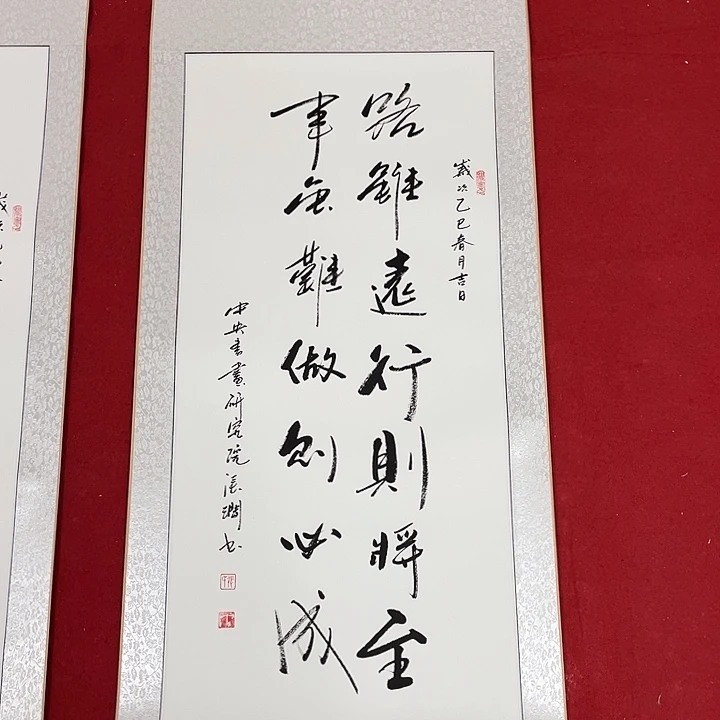 歲次乙巳春月吉日
路雖遠行則將至
事雖難做則必成
中央書畫研究院 書